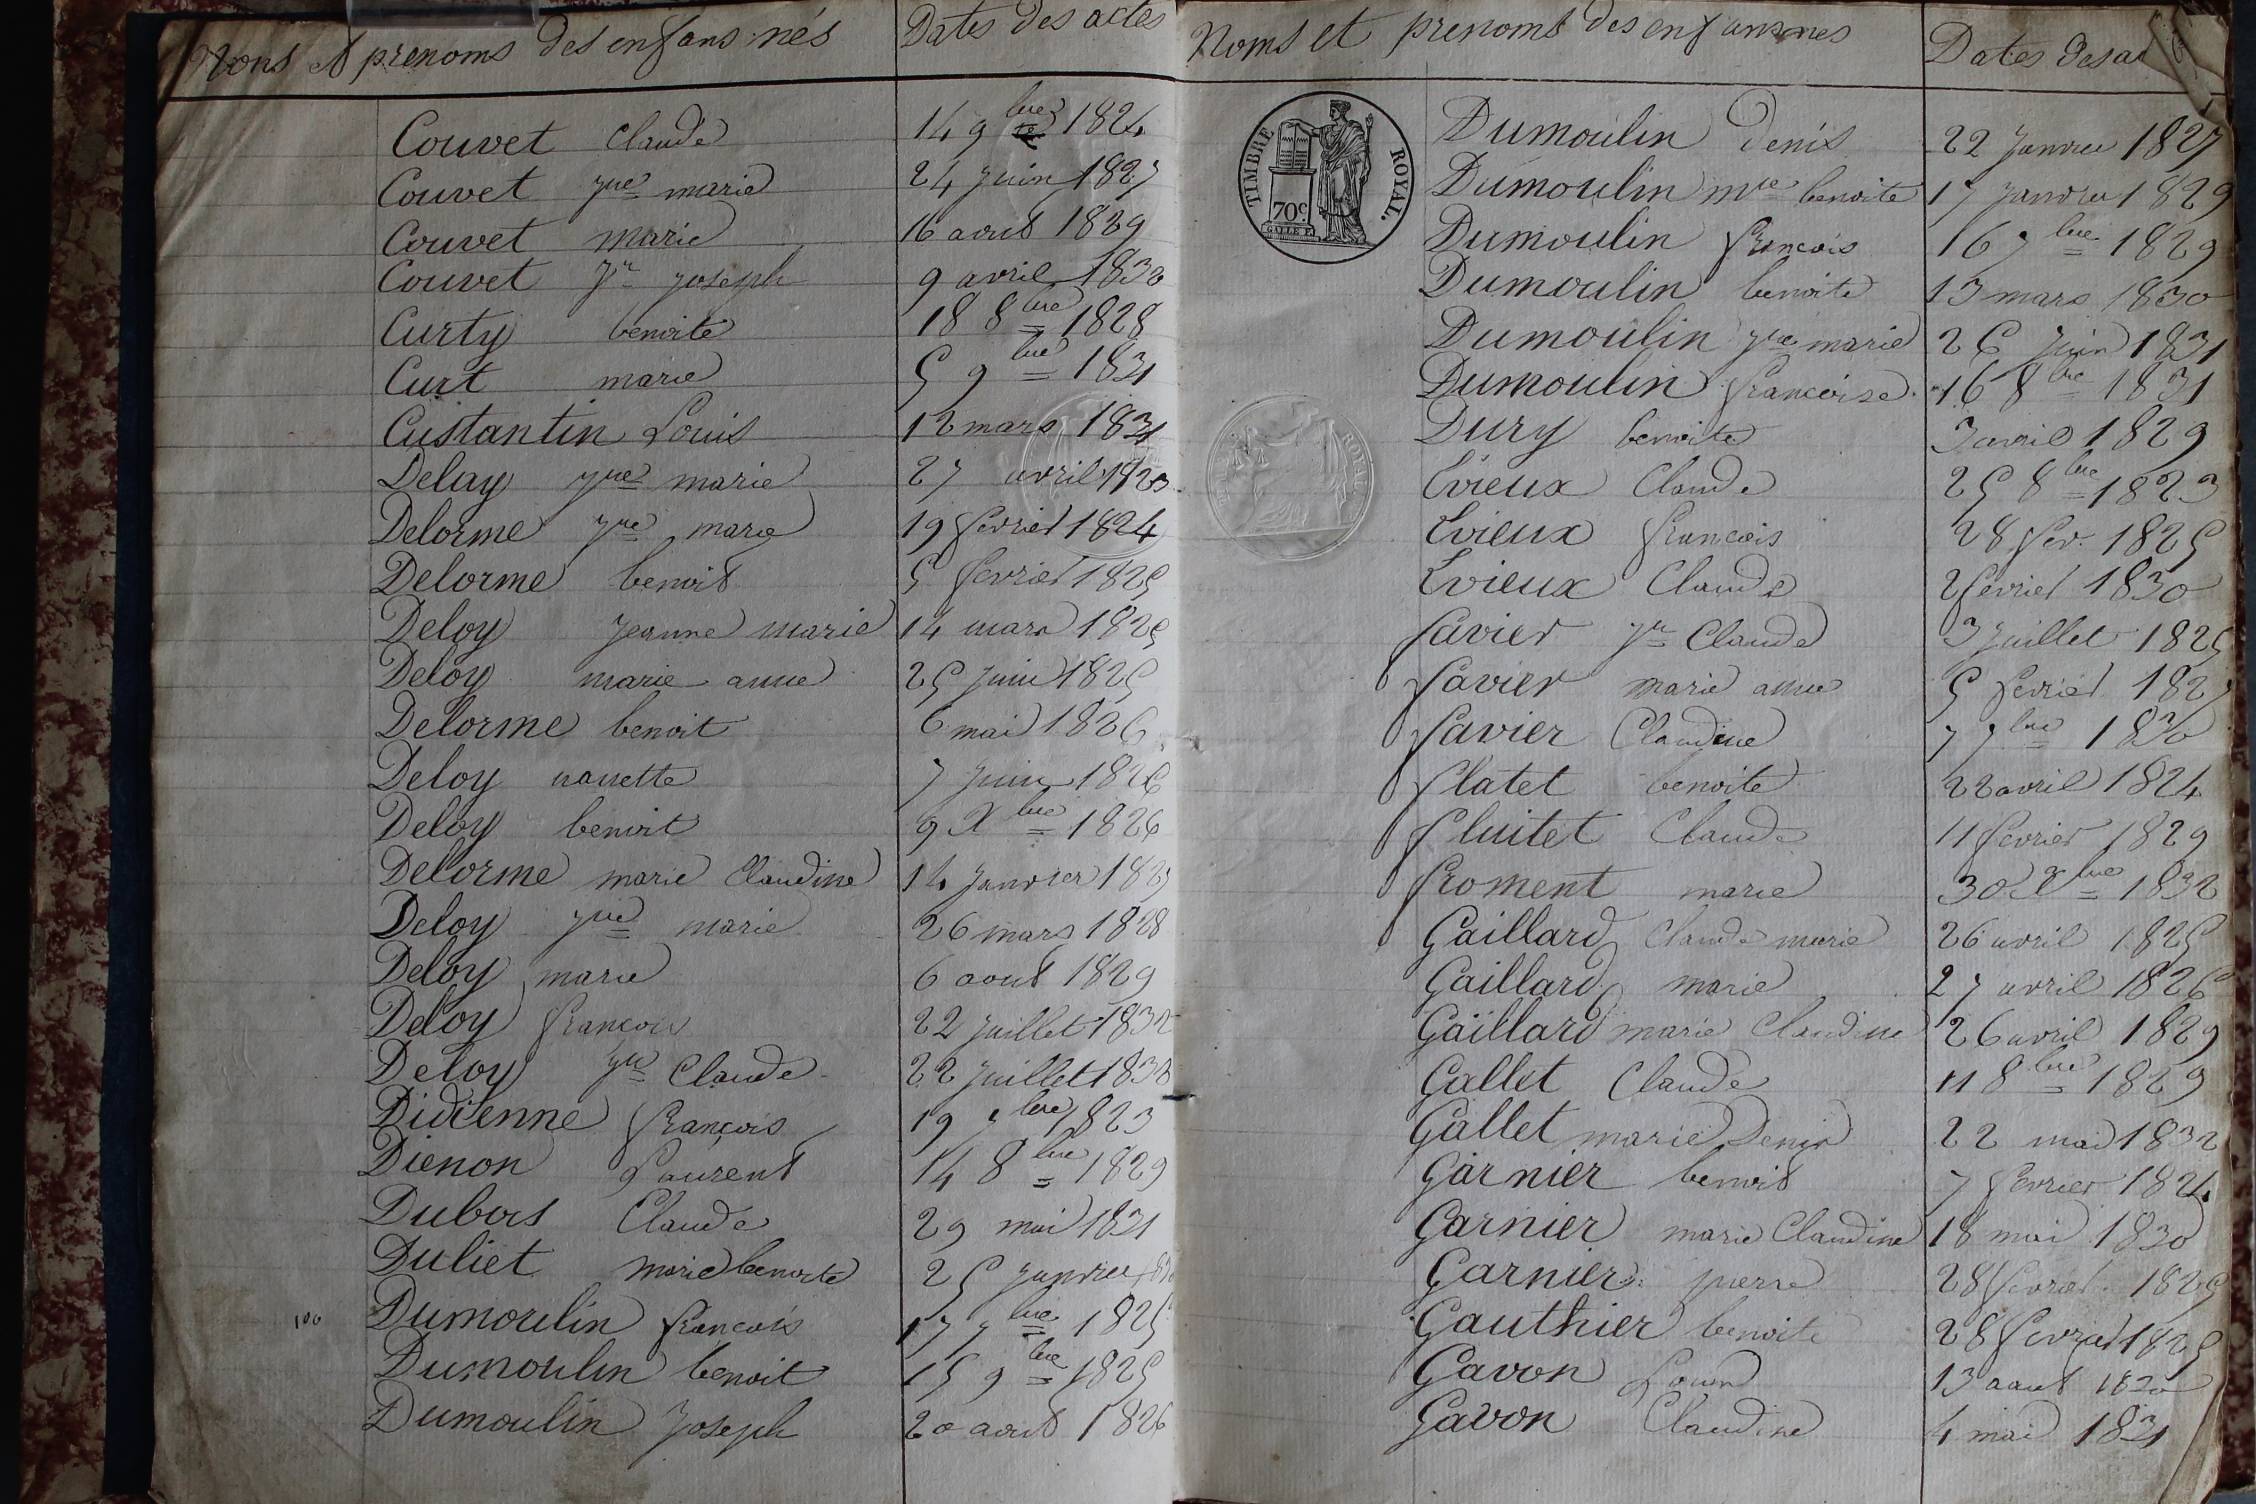 Noms et prenoms des enfans nés Dates des actes
Couvet Claude 14 9bre 1824
Couvet jne marie 24 juin 1827
Couvet marie 16 aout 1829
Couvet jn joseph 9 avril 1832
Curty benoite 18 8bre 1828
Curt marie 5 9bre 1831
Custantin Louis 12 mars 1831
Delay jne marie 27 avril 1823
Delorme jne marie 19 fevrier 1824
Delorme benoit 5 fevrier 1825
Deloy jeanne marie 14 mars 1825
Deloy marie anne 25 juin 1825
Delorme benoit 6 mai 1826
Deloy nanette 7 juin 1826
Deloy benoit 9 Xbre 1826
Delorme marie Claudine 14 janvier 1827
Deloy jne marie 26 mars 1828
Deloy marie 6 aout 1829
Deloy francois 22 juillet 1832
Deloy Claude 22 juillet 1832
Didienne françois 19 7bre 1823
Dienon Laurent 14 8bre 1829
Dubois Claude 29 mai 1831
Duliet marie benoite 25 janvier
100 Dumoulin francois 17 7bre 1825
Dumoulin benoit 15 9bre 1825
Dumoulin Joseph 20 aout 1826
Noms et prenoms des enfans nes Dates des
TIMBRE ROYAL.
70c.
Dumoulin Denis 22 janvier 1827
Dumoulin mie benoite 17 janvier 1829
Dumoulin françois 16 7bre 1829
Dumoulin benoite 13 mars 1830
Dumoulin jne marie 26 juin 1831
Dumoulin françoise 16 8bre 1831
Dury benoite 3 avril 1829
Evieux Claude 25 8bre 1823
Evieux françois 28 fev. 1825
Evieux Claude 2 fevrier 1830
favier jn Claude 3 juillet 1825
favier marie anne 5 fevrier 1827
favier Claudine 7 7bre 1830
flatet benoite 22 avril 1824
flutet Claude 11 fevrier 1829
froment marie 30 Xbre 1832
Gaillard Claude marie 26 avril 1825
Gaillard marie 27 avril 1826
Gaillard marie Claudine 26 avril 1829
Gallet Claude 11 8bre 1829
Gallet marie Denis 22 mai 1832
Garnier benoit 7 fevrier 1824
Garnier marie Claudine 18 mai 1830
Garnier pierre 28 fevrier 1825
Gauthier benoite 28 fevrier 1825
Gavon Louis 13 aout 1820
Gavon Claudine 4 mai 1831